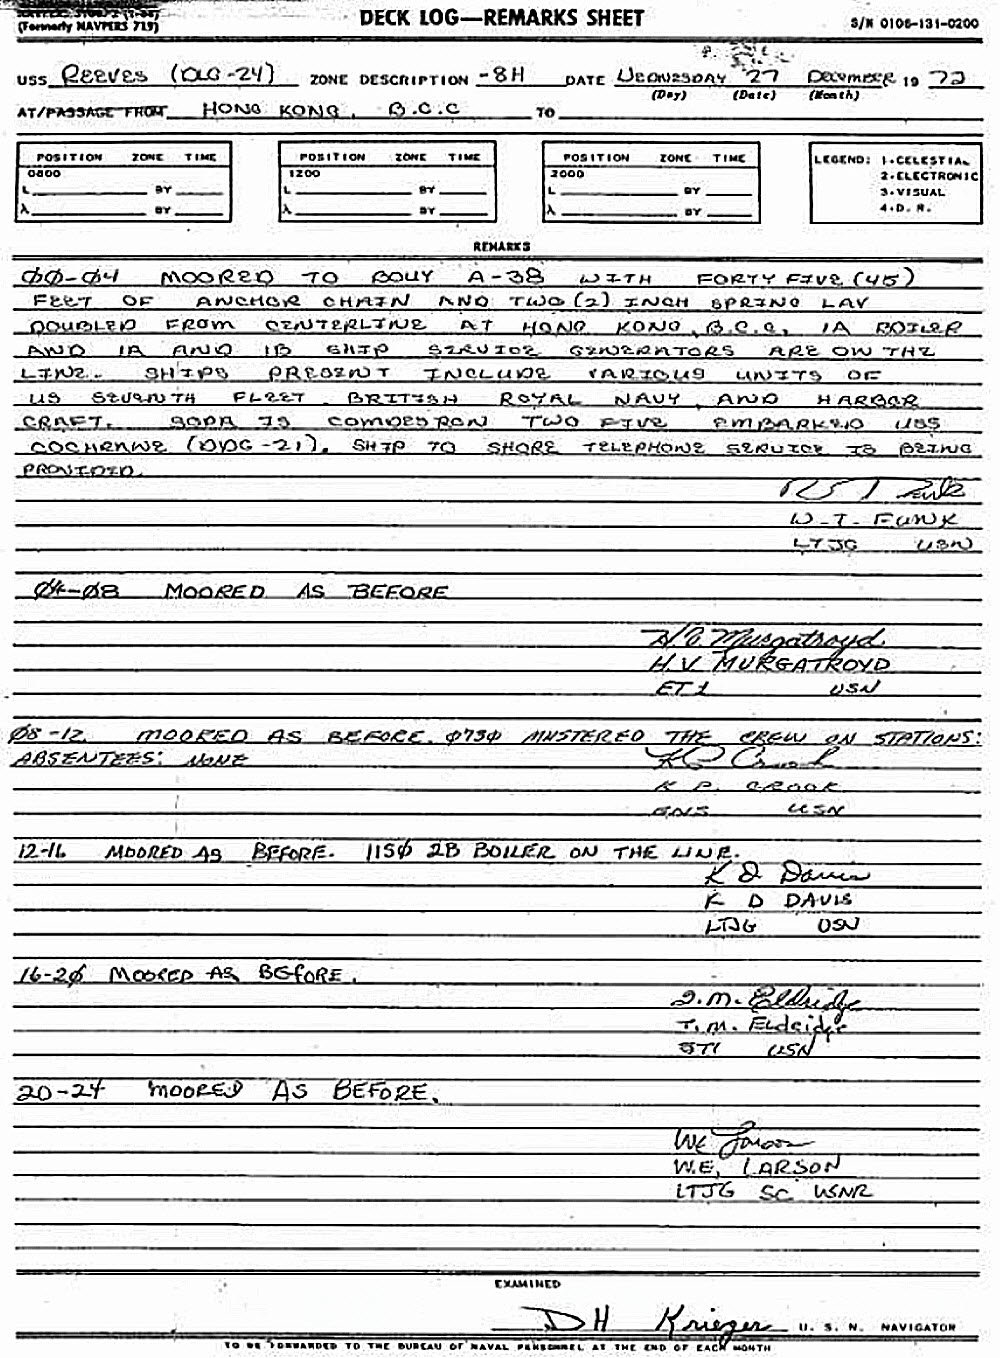 (Formerly NAVPERS 719)
DECK LOG—REMARKS SHEET
S/N 0106-131-0200
USS REEVES (DLG-24) ZONE DESCRIPTION -8H DATE WEDNESDAY 27 DECEMBER 19 72
(Day) (Date) (Month)
AT/PASSAGE FROM HONG KONG, B.C.C TO
POSITION ZONE TIME
0800
L BY
λ BY
POSITION ZONE TIME
1200
L BY
λ BY
POSITION ZONE TIME
2000
L BY
λ BY
LEGEND: 1-CELESTIAL
2-ELECTRONIC
3-VISUAL
4-D. R.
REMARKS
00-04 MOORED TO BOUY A-38 WITH FORTY FIVE (45)
FEET OF ANCHOR CHAIN AND TWO (2) INCH SPRING LAY
DOUBLED FROM CENTERLINE AT HONG KONG, B.C.C. 1A BOILER
AND 1A AND 1B SHIP SERVICE GENERATORS ARE ON THE
LINE. SHIPS PRESENT INCLUDE VARIOUS UNITS OF
US SEVENTH FLEET, BRITISH ROYAL NAVY, AND HARBOR
CRAFT. SOPA IS COMDESRON TWO FIVE EMBARKED USS
COCHRANE (DDG-21). SHIP TO SHORE TELEPHONE SERVICE IS BEING
PROVIDED.
W. T. FUNK
LTJG USN
04-08 MOORED AS BEFORE
H.V. Murgatroyd
H.V. MURGATROYD
ET1 USN
08-12 MOORED AS BEFORE. 0730 MUSTERED THE CREW ON STATIONS:
ABSENTEES: NONE
K P Crook
K P. CROOK
ENS USN
12-16 MOORED AS BEFORE. 1150 2B BOILER ON THE LINE.
K D Davis
K D DAVIS
LTJG USN
16-20 MOORED AS BEFORE.
T.M. Eldridge
T.M. Eldridge
ST1 USN
20-24 MOORED AS BEFORE.
WE Larson
W.E. LARSON
LTJG SC USNR
EXAMINED
DH Krieger U. S. N. NAVIGATOR
TO BE FORWARDED TO THE BUREAU OF NAVAL PERSONNEL AT THE END OF EACH MONTH